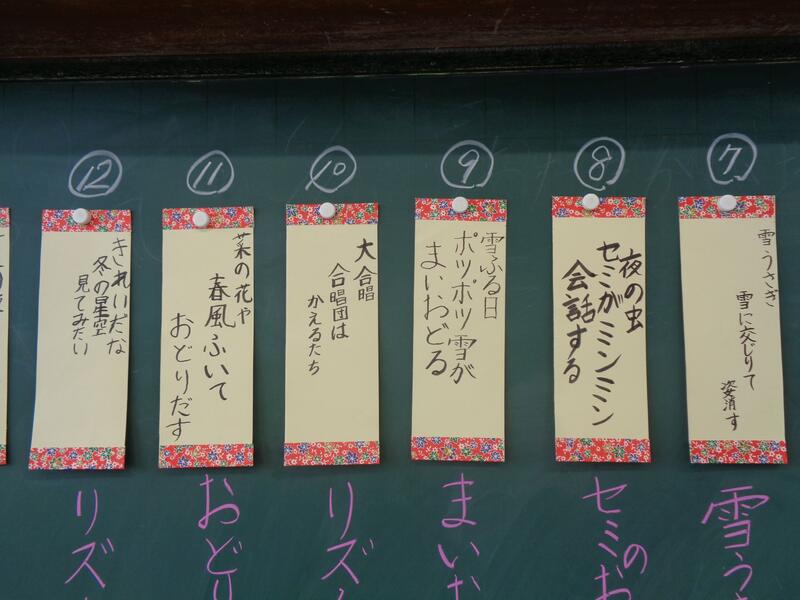 ⑦
雪うさぎ
雪に交じりて
姿消す
雪う
⑧
夜の虫
セミがミンミン
会話する
セミの
お
⑨
雪ふる日
ポツポツ雪が
まいおどる
まいお
⑩
大合唱
合唱団は
かえるたち
リズ
⑪
菜の花や
春風ふいて
おどりだす
おどり
⑫
きれいだな
冬の星空
見てみたい
リズ